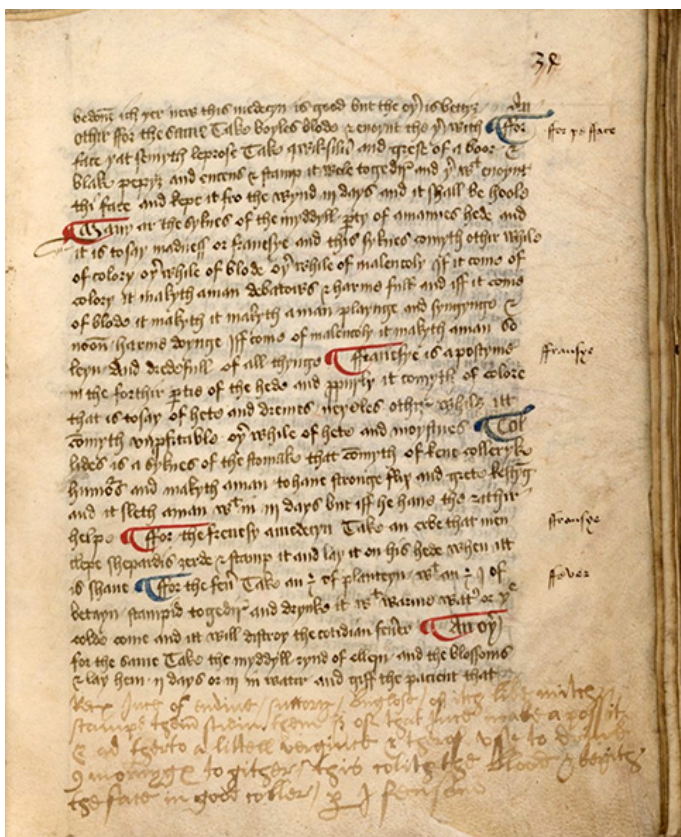 38
bedone ich yer new this medecyn is good but the oyr is better An
othir ffor the same Take boyles blode & enoynt the yr with ffor
ffor ye fface
face yat semyth leprose Take qwiksilur and grese of a boor &
blake pepyr and encens & stamp it wele togedir and yr wt enoynt
thi face and kepe it fro the wynd iii days and it shall be hoole
Many ar the syknes of the myddyll prty of amannes hede and
it is to say madness or franesye and this syknes comyth othir while
of colory oyr while of blode oyr while of malencoly If it come of
colory it makyth aman debatours & harme full and iff it come
of blode it makyth it makyth aman playnge and syngynge &
noon harme doynge Iff come of malencoly it makyth aman so
leyn And dredefull of all thynge Franesye is apostyme
ffransye
in the forthir prtis of the hede and pprirly it comyth of colore
that is to say of hete and dremes neyeles othir while itt
comyth unprfitable oyr while of hete and moystnes Col
lides is a syknes of the stomake that comyth of kene colleryk
humors and makyth aman to haue stronge flix and grete
and it sleth aman wt in iii days but iff he haue the rathir
helpe ffor the frenesy amedecyn Take an erbe that men
ffransye
clepe shepardis zerde & stamp it and lay it on his hede when itt
is shaue ffor the feur Take an ℥ of planteyn wt an ℥ j of
ffever
betayn stampid togedir and drynke it wt warme watr or ye
colde come and itt will distroy the cotidian feure An oyr
for the same Take the myddyll rynd of ellern and the blossoms
& lay hem ii days or iii in water and giff the pacient that
Rex Juce of endiue / / buglose / of itch like mitch
stampe them strein them & of that Juce make a possit
& ad therto a litell verginte & therof vse to drinke
9 mornynge to gither / this colith the blood & bryngith
the face in good coller /